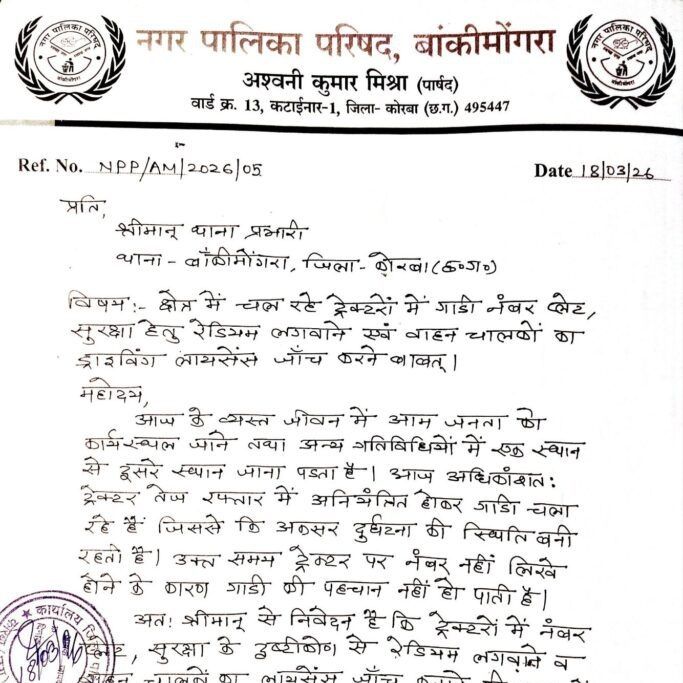 नगर पालिका परिषद, बांकीमोंगरा
अश्वनी कुमार मिश्रा (पार्षद)
वार्ड क्र. 13, कटाईनार-1, जिला- कोरबा (छ.ग.) 495447
Ref. No. NPP/AM/2026/05 Date 18/03/26
प्रति,
श्रीमान् थाना प्रभारी
थाना - बाँकीमोंगरा, जिला- कोरबा (छ०ग०)
विषय:- क्षेत्र में चल रहे ट्रेक्टरों में गाडी नंबर प्लेट,
सुरक्षा हेतु रेडियम लगवाने एवं वाहन चालकों का
ड्राइविंग लायसेंस जाँच करने बाबत्।
महोदय,
आज के व्यस्त जीवन में आम जनता को
कार्यस्थल जाने तथा अन्य गतिविधियों में एक स्थान
से दूसरे स्थान जाना पडता है। आज अधिकांशत:
ट्रेक्टर तेज रफ्तार में अनियंत्रित होकर गाडी चला
रहे हैं जिससे कि अक्सर दुर्घटना की स्थिति बनी
रहती है। उक्त समय ट्रेक्टर पर नंबर नहीं लिखे
होने के कारण गाडी की पहचान नहीं हो पाती है।
अत: श्रीमान् से निवेदन है कि ट्रेक्टरों में नंबर
प्लेट, सुरक्षा के दृष्टीकोण से रेडियम लगवाने व
वाहन चालकों का लायसेंस जाँच करने
कार्यालय